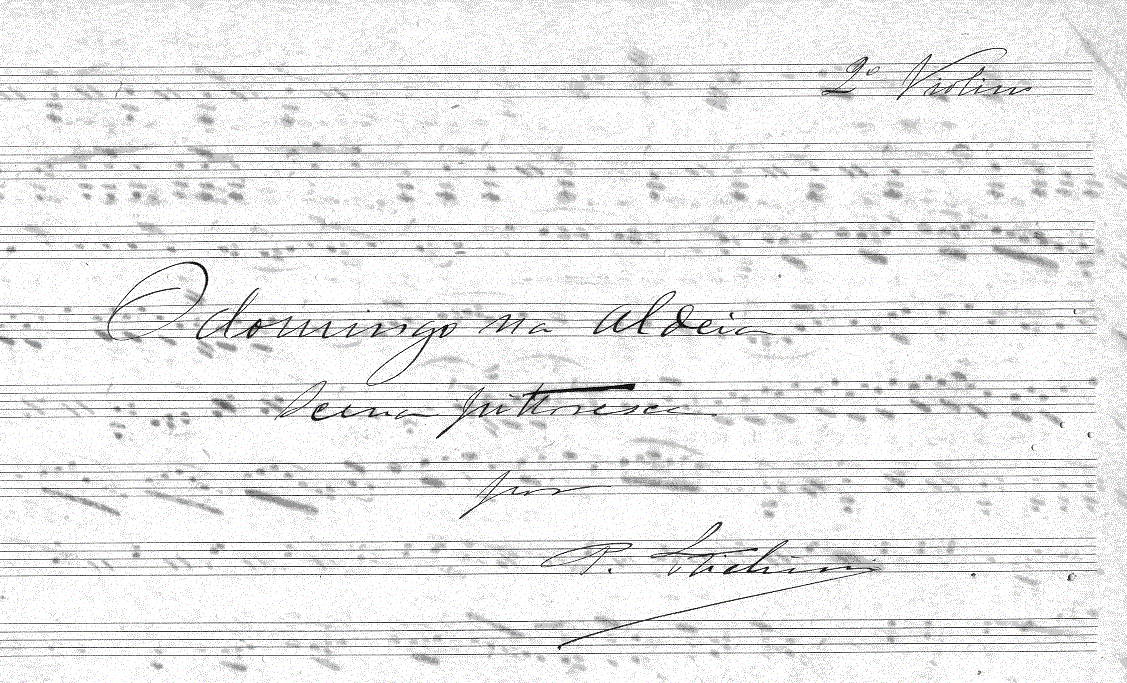 2º Violino
O domingo na aldeia
Scena pittoresca
por
P.